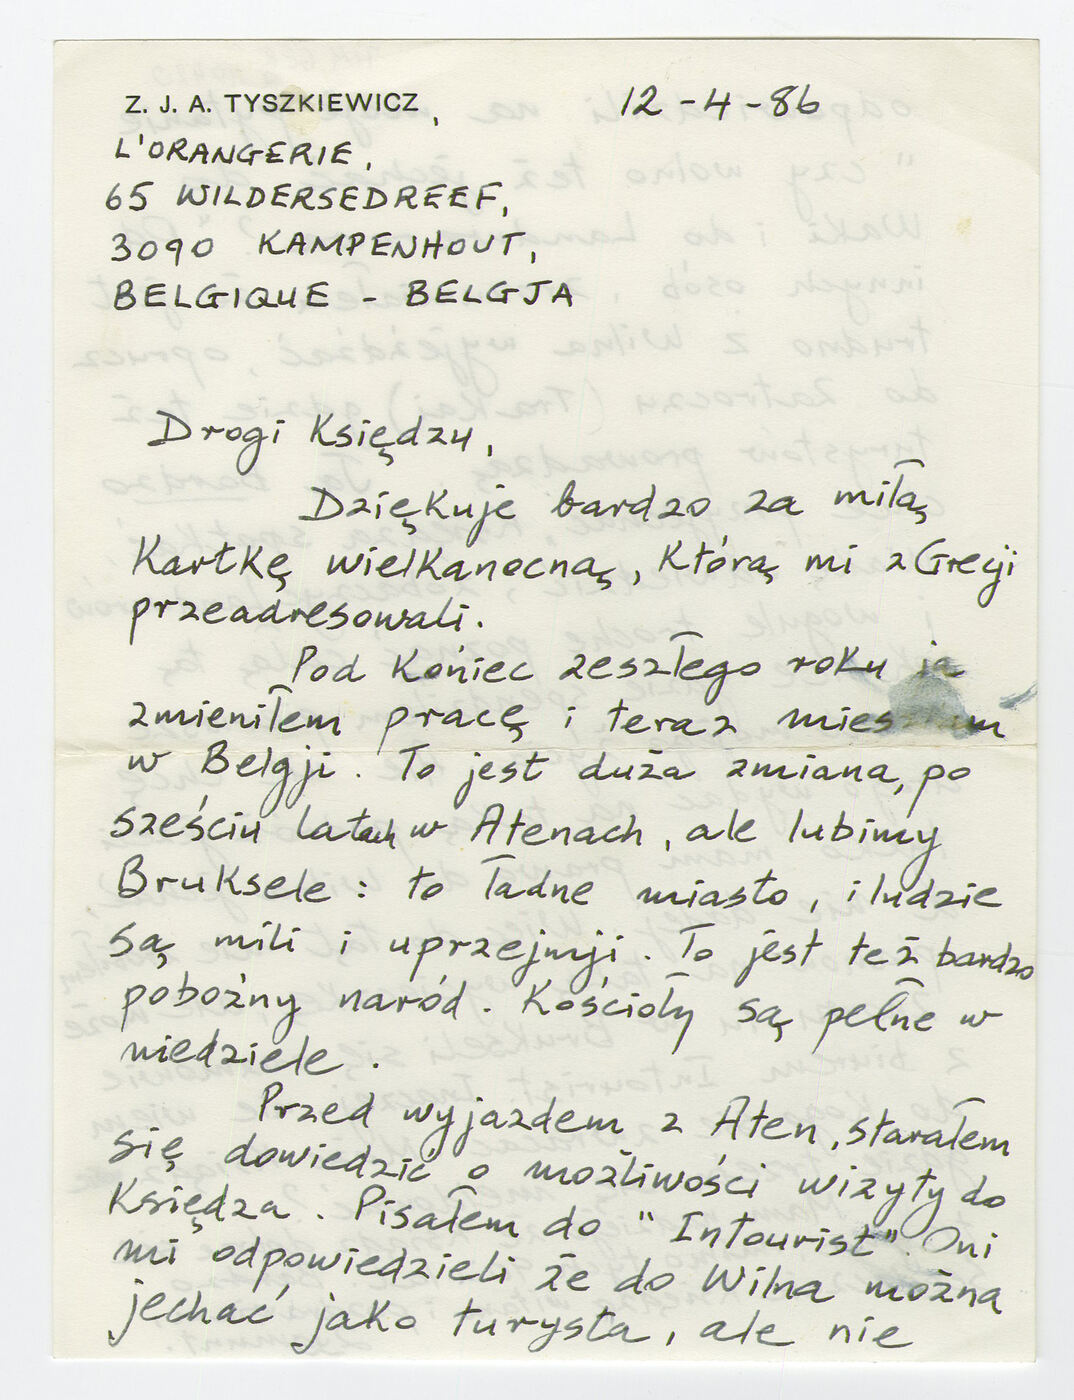 Z. J. A. TYSZKIEWICZ,
12-4-86
L'ORANGERIE,
65 WILDERSEDREEF,
3090 KAMPENHOUT,
BELGIQUE - BELGJA
Drogi Księdzu,
Dziękuje bardzo za miłą
Kartkę wielkanocną, którą mi z Grecji
przeadresowali.
Pod końiec zeszłego roku ja
zmieniłem pracę i teraz mieszkam
w Belgji. To jest duża zmiana, po
sześciu latach w Atenach, ale lubimy
Bruksele: to ładne miasto, i ludzie
są mili i uprzejmji. To jest też bardzo
pobożny naród. Kościoły są pełne w
niedziele.
Przed wyjazdem z Aten, starałem
się dowiedzić o możliwości wizyty do
Księdza. Pisałem do "Intourist". Oni
mi odpowiedzieli że do Wilna można
jechać jako turysta, ale nie